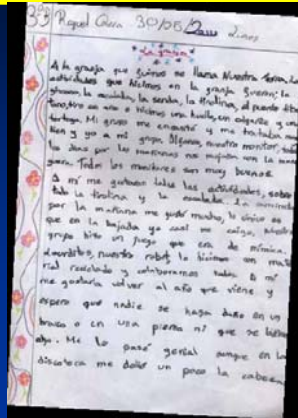 Raquel 30/05/
La granja
A la granja que fuimos se llama Nuestra Tierra, las
actividades que hicimos en la granja fueron: la
gincana, la escalada, la senda, la tirolina, el puente
tiro con arco e hicimos una huella, un colgante y una
tortuga. Mi grupo me encantó y me trataba
bien y yo a mi grupo. nuestro monitor, todos
los días por las mañanas nos mojaba con la man
guera. Todos los monitores son muy buenos.
A mi me gustaron todas las actividades, sobre
todo la tirolina y la escalada. La caminata
por la mañana me gustó mucho, lo único es
que en la bajada yo casi me caigo. Nuestro
grupo hizo un juego que era de mímica.
nuestro robot lo hicimos con mate
rial reciclado y colaboramos todos. A mi
me gustaría volver al año que viene y
espero que nadie se haga daño en un
brazo o en una pierna ni que se
algo. Me lo pasé genial aunque en la
discoteca me dolió un poco la cabeza